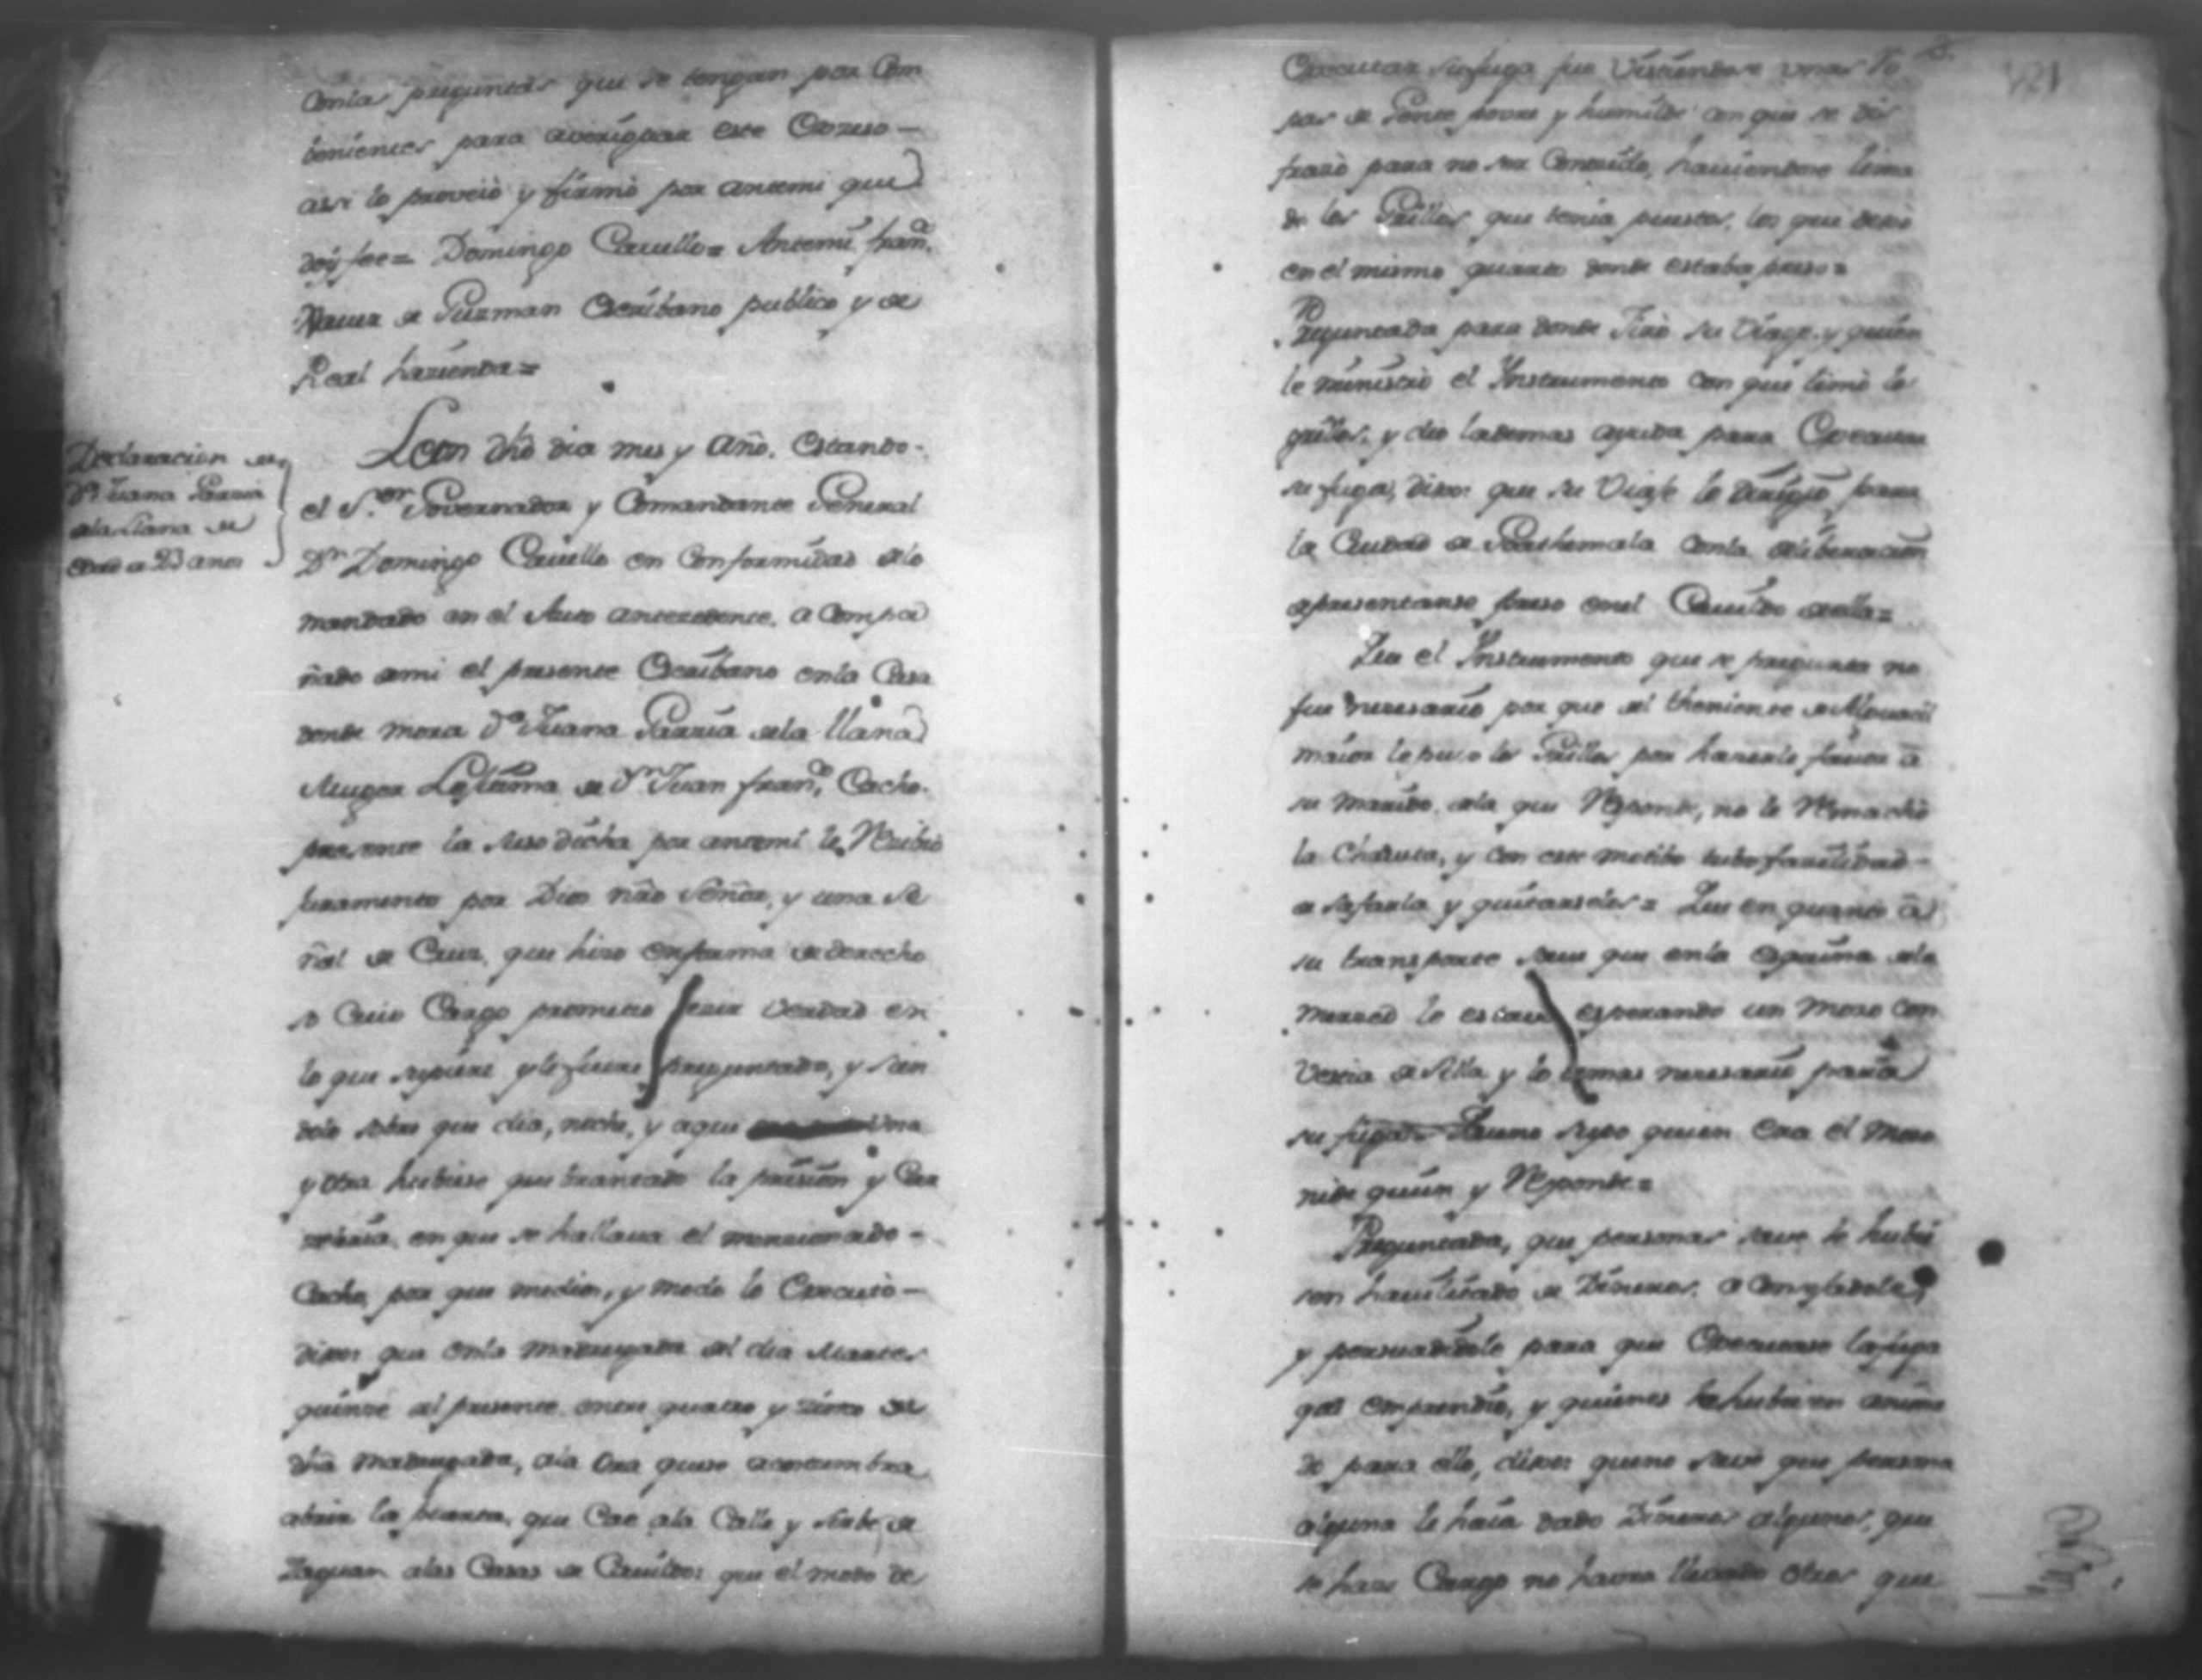 Con las preguntas que se tengan por Com
benientes para averiguar este Expreso –
assi lo proveió y firmó por antemi que
doy fee = Domingo Cavello = Antemi fran.co
Xavier de Guzman Escribano publico y de
Real hazienda =
Declaracion de
Da Juana Garzia
de la Llana de
edad de 23 anos
Leon dho dia mes y año. Estando -
el S.or Governador y Comandante General
Dn Domingo Cavello en Conformidad de lo
mandado en el Auto antezedente, a Compa
ñado de mi el presente Escribano en la Casa
donde mora Da Juana Garzia de la llana
Muger Lejitima de Dn Juan fran.co Cacho.
presente la suso dicha por antemi le Recibió
juramento por Dios nro Señor, y una Se
ñal de Cruz, que hizo en forma de derecho
so Cuio Cargo prometió dezir verdad en
lo que supiere y le fuere preguntado, y sien
dolo sobre que dia, noche, y a que una
y otra hubiese quebrantado la prision y Car
zeleria en que se hallava el menzionado -
Cacho, por que medios, y modo lo Executó –
dixo: que en la madrugada del dia Martes
quinze del presente entre quatro y zinco de
dha madrugada, a la Ora que se acostumbra
abrir la puerta, que Cae a la Calle y sirbe de
Zaguan a las Casas de Cavildo: que el modo de
121
Executar su fuga fue Vistiendose unas Ro
pas de Gente povre y humilde con que se dis
frazó para no ser Conozido, haviendose lima
do los Grillos que tenia puestos, los que dexó
en el mismo quarto donde estaba preso =
Preguntada para donde Tiró su Viage, y quien
le ministró el Ynstrumento con que limó lo
grillos, y dio la demas ayuda para Executar
su fuga, dixo: que su Viaje lo dirigió para
la Ciudad de Goathemala con la deliberacion
de presentarse preso en el Cavildo de ella =
Que el Ynstrumento que se pregunta no
fue nezesario por que el theniente de Alguacil
maior le puso los Grillos por hazerle favor à
su marido, a la que Responde, no le Remachó
la Chaveta, y con este motibo tubo fazilidad –
de safarla y quitarselos = Que en quanto à
su transporte save que en la esquina de la
merzed le estava esperando un Moso con
Vestia de silla y lo demas nezesario para
su fuga = Que no supo quien era el Moso
ni de quien y Responde =
Preguntada, que personas save le hubie
sen havilitado de Dineros, a Consejadole,
y persuadidole para que Executase la fuga
que emprendió, y quienes le hubiesen anima
do para ello, dixo: que no save que persona
alguna le haia dado Dineros algunos, que
se haze Cargo no havra llevado otros que